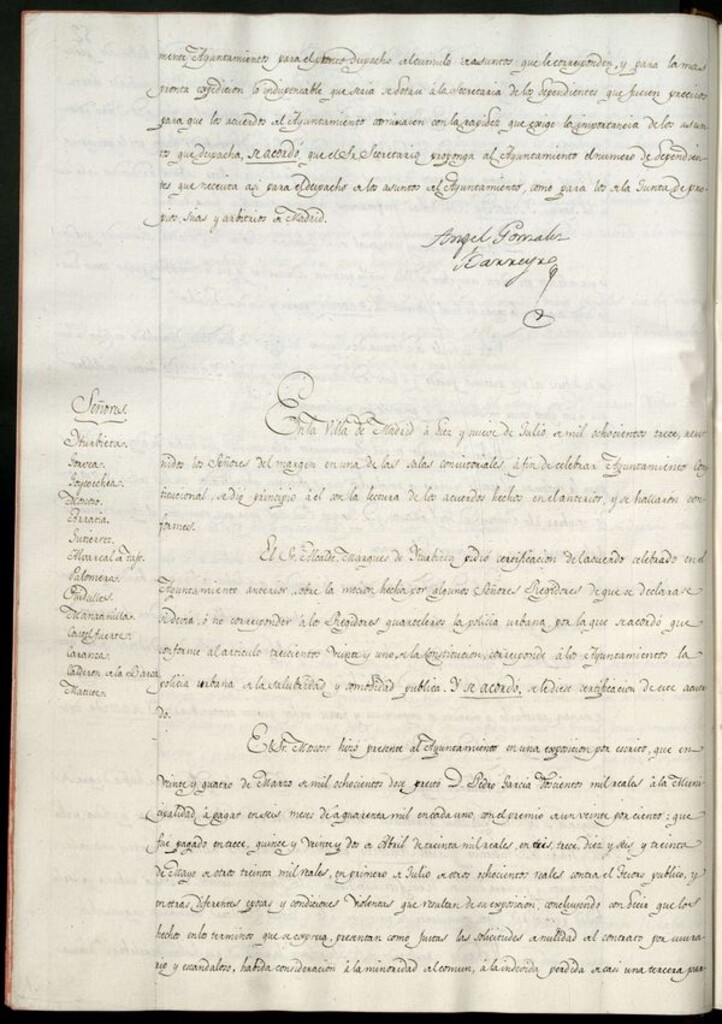 mente Ayuntamiento para el pronto despacho al cumulo de asuntos que le corresponden, y para la mas
pronta expedicion lo indispensable que seria se dotase à la Secretaria de los dependientes que fuesen precisos
para que los acuerdos del Ayuntamiento caminasen con la rapidez que exige la importancia de los asun
tos que despacha, se acordó, que el Sr. Secretario proponga al Ayuntamiento el numero de dependien
tes que necesita asi para el despacho de los asuntos del Ayuntamiento, como para los de la Junta de pro
pios, sisas y arbitrios de Madrid.
Angel Gonzalez
Barreyro
Señores
Yturbieta.
Goycoechea.
Moscoso.
Gutierrez.
Palomera.
Manzanilla.
Castelfuerte.
Caranza.
Calderon de la Barca
En la Villa de Madrid à diez y nueve de Julio de mil ochocientos trece, reu
nidos los Señores del margen en una de las salas consistoriales, à fin de celebrar Ayuntamiento Cons
titucional, se dió principio à el con la lectura de los acuerdos hechos en el anterior, y se hallaron con
formes.
El Sr. Alcalde Marques de Yturbieta pidió certificacion del acuerdo celebrado en el
Ayuntamiento anterior, sobre la mocion hecha por algunos Señores Regidores de que se declarase
si devia, ó no corresponder à los Regidores quarteleros la policia urbana por la que se acordó que
conforme al articulo trecientos veinte y uno, de la Constitucion, corresponde à los Ayuntamientos la
policia urbana de la salubridad y comodidad publica. Y se acordó, se le diese certificacion de este acuer
do.
El Sr. Moscoso hizo presente al Ayuntamiento en una exposicion por escrito, que en
veinte y quatro de Marzo de mil ochocientos doce prestó D. Pedro Garcia doscientos mil reales à la Muni
cipalidad à pagar en seis meses de à quarenta mil en cada uno, con el premio de un veinte por ciento: que
fue pagado en trece, quince y veinte y dos de Abril de treinta mil reales, en tres, trece, diez y seis, y treinta
de Mayo de otros treinta mil reales, en primero de Julio de otros ochocientos reales contra el Tesoro publico, y
en otras diferentes epocas y condiciones violentas que resultan de su exposicion, concluyendo con decir que los
hechos en los terminos que se expresa, presentan como justas las solicitudes de nulidad del contrato por usura
rio y escandaloso, habida consideracion à la minoridad del comun, à la indevida perdida de casi una tercera par